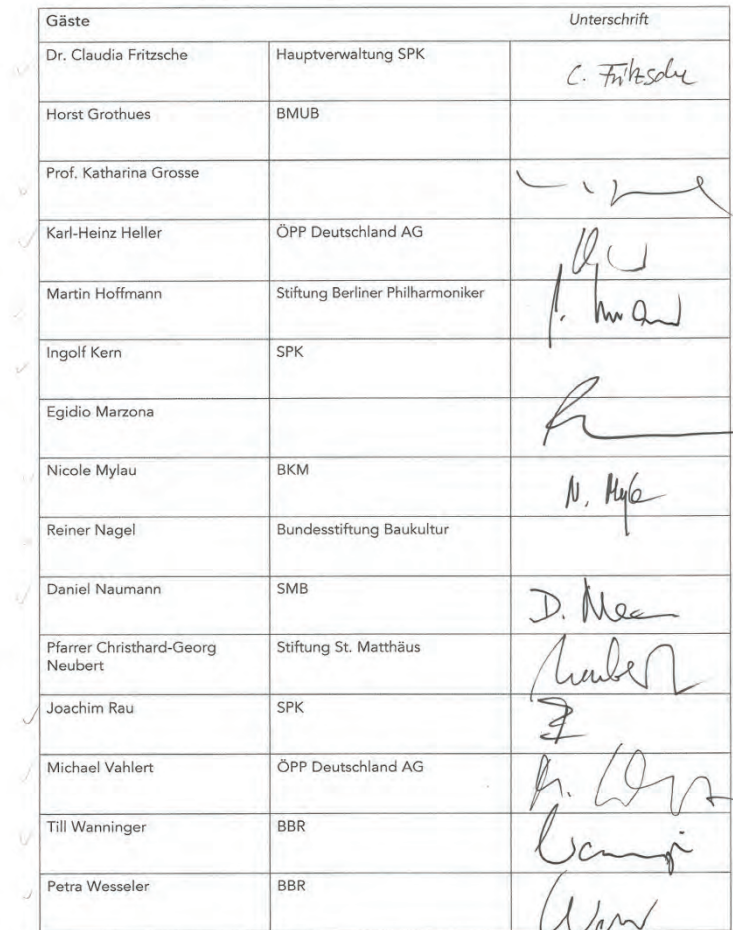 Gäste Unterschrift
Dr. Claudia Fritzsche Hauptverwaltung SPK C. Fritzsche
Horst Grothues BMUB
Prof. Katharina Grosse
Karl-Heinz Heller ÖPP Deutschland AG
Martin Hoffmann Stiftung Berliner Philharmoniker
Ingolf Kern SPK
Egidio Marzona
Nicole Mylau BKM
Reiner Nagel Bundesstiftung Baukultur
Daniel Naumann SMB
Pfarrer Christhard-Georg Stiftung St. Matthäus
Neubert
Joachim Rau SPK
Michael Vahlert ÖPP Deutschland AG
Till Wanninger BBR
Petra Wesseler BBR